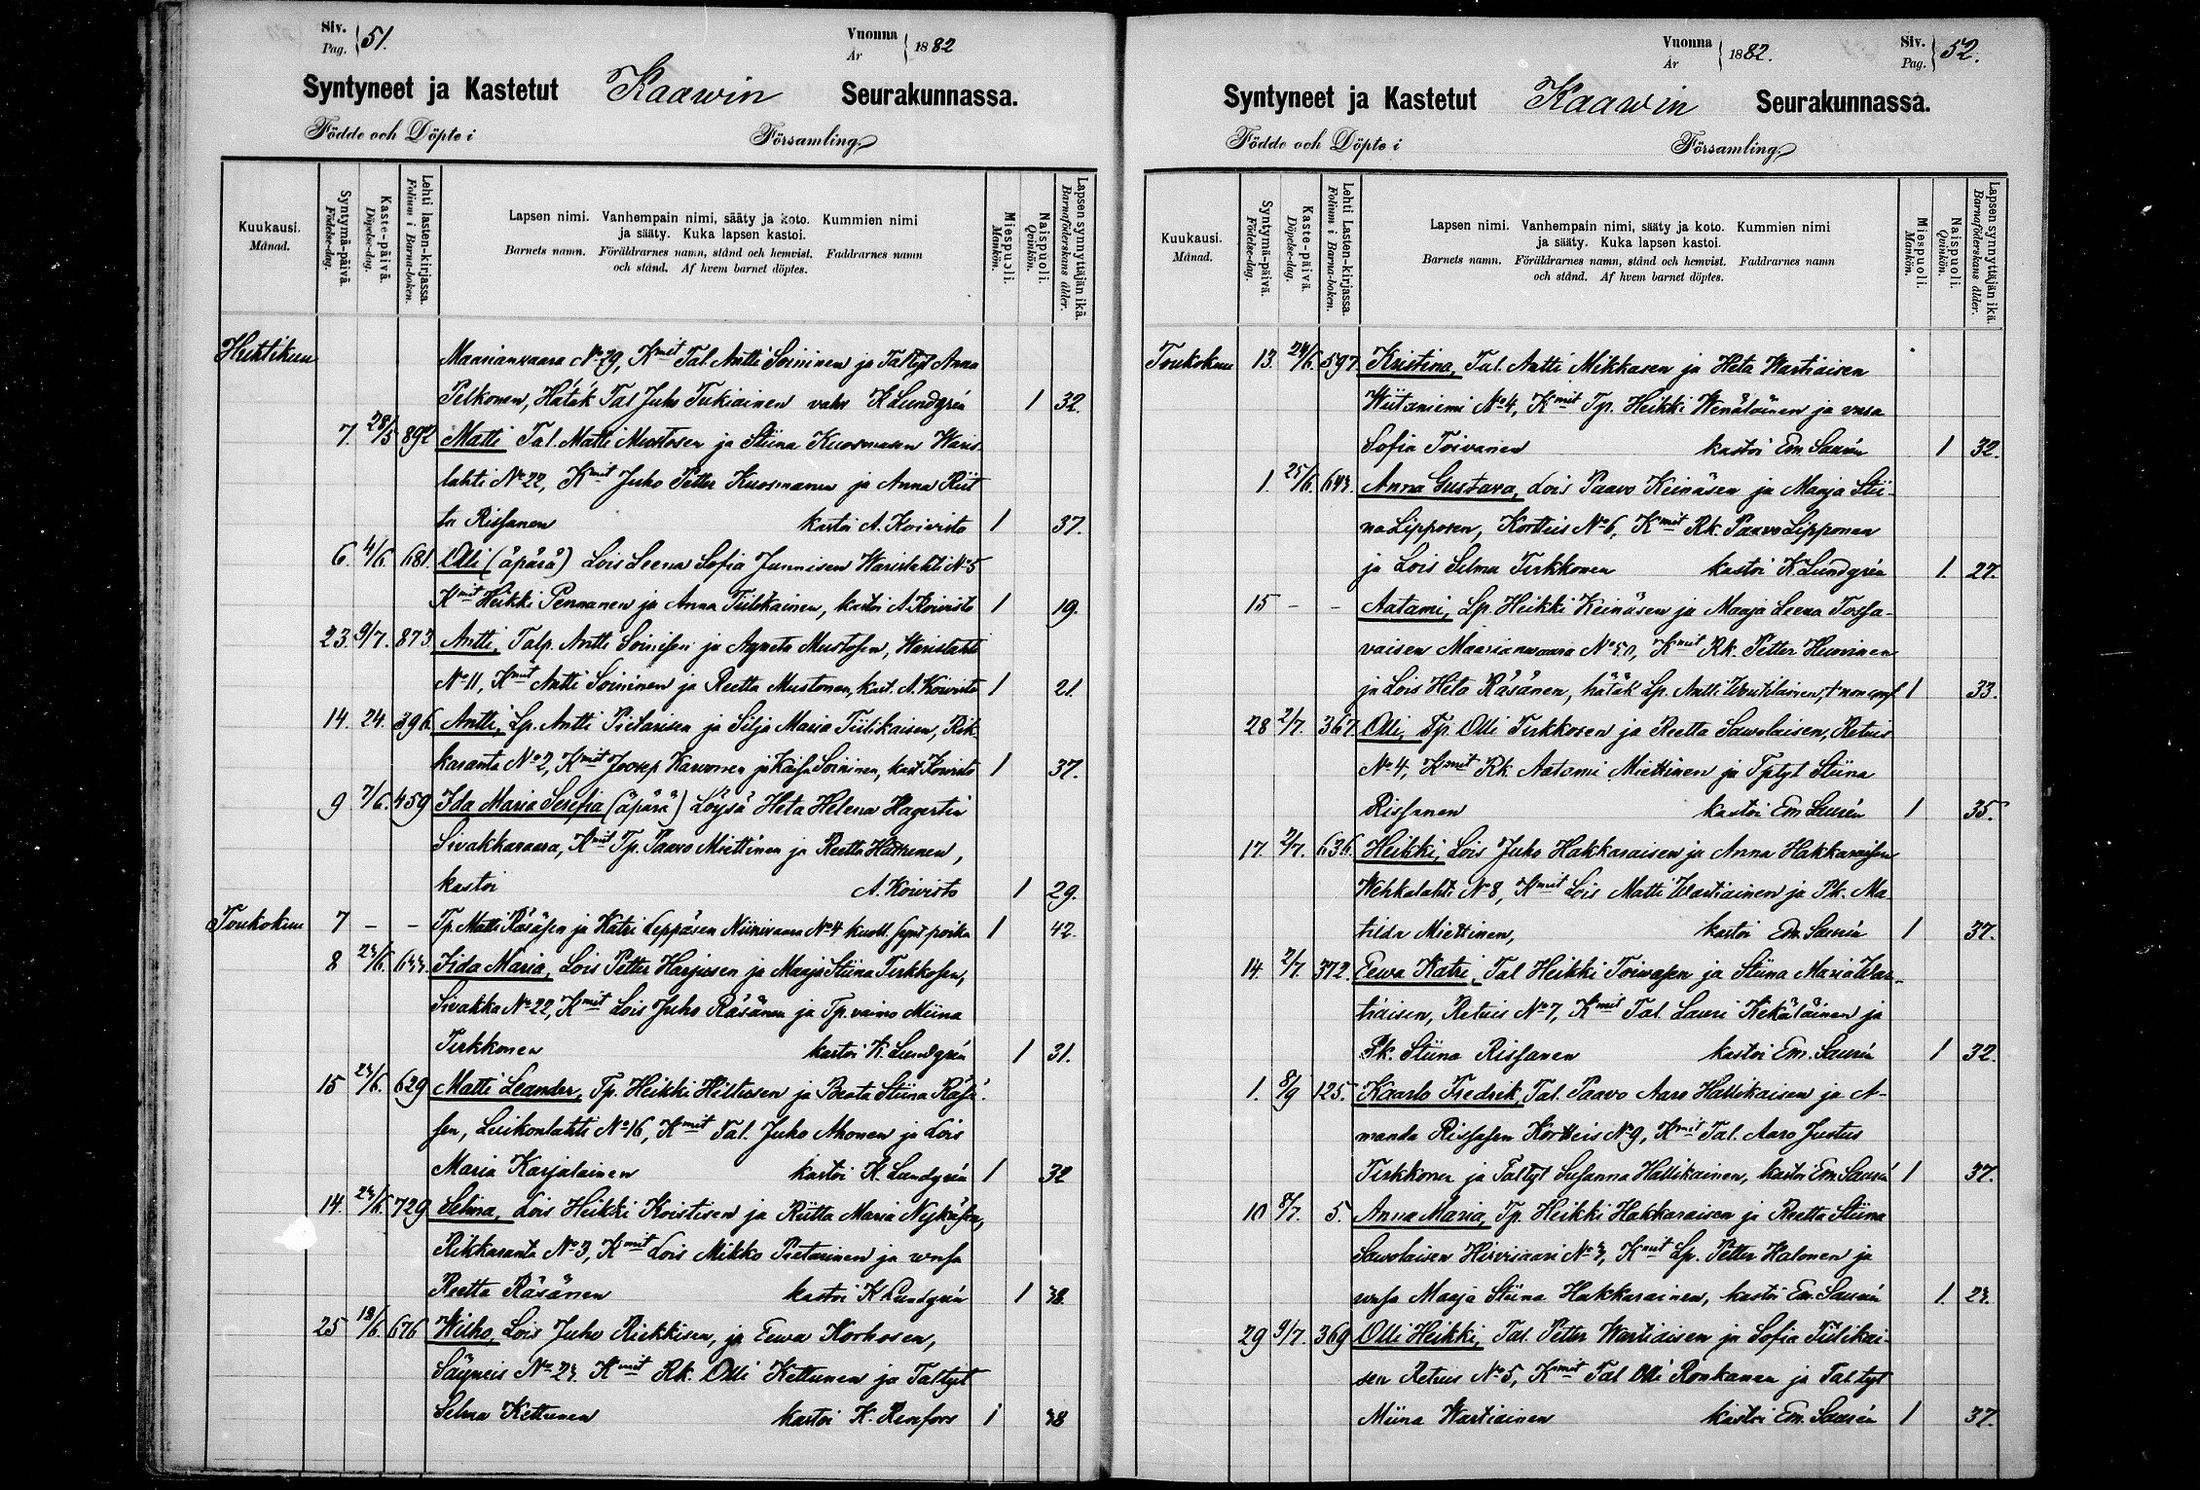 Siv. Pag. 51.
Vuonna År 1882
Syntyneet ja Kastetut Kaawin Seurakunnassa.
Födde och Döpte i Församling
Kuukausi. Månad.
Syntymä-päivä. Födelse-dag.
Kaste-päivä. Döpelse-dag.
Lehti lasten-kirjassa. Folium i Barna-boken.
Lapsen nimi. Vanhempain nimi, sääty ja koto. Kummien nimi
ja sääty. Kuka lapsen kastoi.
Barnets namn. Föräldrarnes namn, stånd och hemvist. Faddrarnes namn
och stånd. Af hvem barnet döptes.
Miespuoli. Mankön.
Naispuoli. Qvinkön.
Lapsen synnyttäjän ikä. Barnaföderskans ålder.
Huhtikuu Maarianvaara No 29, Kmit Tal. Antti Soininen ja Taltyt Anna
Pelkonen, Hätäk Tal Juho Tukiainen vahv K Lundgrén 1 32.
7. 28/5 892 Matti Tal. Matti Mustosen ja Stiina Kuosmasen Waris-
lahti No 22, Kmit Juho Petter Kuosmanen ja Anna Riit
ta Rissanen kastoi A. Koivisto 1 37.
6. 4/6. 681. Olli (äpärä) Lois Leena Sofia Junnisen Warislahti No 5
Kmit Heikki Pennanen ja Anna Tiilikainen, kastoi A Koivisto 1 19.
23. 9/7. 873. Antti, Talp. Antti Soinisen ja Agneta Mustosen, Warislahti
No 11, Kmit Antti Soininen ja Reetta Mustonen, kast. A. Koivisto 1 21.
14. 24. 396. Antti, Lp. Antti Pietarisen ja Silja Maria Tiilikaisen, Rik-
karanta No 2, Kmit Joosep Karvonen ja Kaisa Soininen, kast Koivisto 1 37.
9 7/6. 459 Ida Maria Serefia (äpärä) Löysä Heta Helena Hagertin
Sivakkavaara, Kmit Tp. Paavo Miettinen ja Reetta Hättunen,
kastoi A. Koivisto 1 29.
Toukokuu 7 - - Tp. Matti Räsäsen ja Katri Leppäsen Niinivaara No 4 kuoll. synt poika 1 42.
8 24/6. Iida Maria, Lois Petter Harjusen ja Maaja Stiina Tirkkosen,
Sivakka No 22, Kmit Lois Juho Räsänen ja Tp. vaimo Miina
Tirkkonen kastoi K. Lundgrén 1 31.
15 24/6. 629 Matti Leander, Tp. Heikki Hiltusen ja Beata Stiina Räsä-
sen, Luikonlahti No 16, Kmit Tal. Juho Ahonen ja Lois
Maria Karjalainen kastoi K. Lundgrén 1 32
14. 24/6. 729 Selma, Lois Heikki Koistisen ja Riitta Maria
Rikkaranta No 3, Kmit Lois Mikko Pietarinen ja
Reetta Räsänen kastoi K Lundgrén 1 38.
25 18/6. 676 Wilho, Lois Juho Riekkisen, ja Eewa Korhosen,
Säyneis No 24. Kmit Rk. Olli Kettunen ja Taltyt
Selma Kettunen kastoi K. Renfors 1 38
Vuonna År 1882.
Siv. Pag. 52.
Syntyneet ja Kastetut Kaawin Seurakunnassa.
Födde och Döpte i Församling
Kuukausi. Månad.
Syntymä-päivä. Födelse-dag.
Kaste-päivä. Döpelse-dag.
Lehti Lasten-kirjassa. Folium i Barna-boken.
Lapsen nimi. Vanhempain nimi, sääty ja koto. Kummien nimi
ja sääty. Kuka lapsen kastoi.
Barnets namn. Föräldrarnes namn, stånd och hemvist. Faddrarnes namn
och stånd. Af hvem barnet döptes.
Miespuoli. Mankön.
Naispuoli. Qvinkön.
Lapsen synnyttäjän ikä. Barnaföderskans ålder.
Toukokuu 13. 24/6. 597. Kristina, Tal. Antti Mikkasen ja Heta Wartiaisen
Wiitaniemi No 4, Kmit Tp. Heikki Wenäläinen ja
Sofia Toivanen kastoi Em Saurén 1 32.
1. 25/6. 643. Anna Gustava, Lois Paavo Keinäsen ja Maaja Stii-
na Lipposen, Kortteis No 6, Kmit Rk. Paavo Lipponen
ja Lois Selma Tirkkonen kastoi K Lundgrén 1. 27.
15 - - Aatami, Lp. Heikki Keinäsen ja Maaja Leena Tossa-
vaisen Maarianvaara No 50, Kmit Rk. Petter Hurvinen
ja Lois Heta Räsänen, hätäk Lp. Antti Woutilainen, 1 33.
28 2/7. 367 Olli, Tp. Olli Tirkkosen ja Reetta Sawolaisen, Retuis
No 4, Kmit Rk Aatami Miettinen ja Tptyt Stiina
Rissanen kastoi Em Saurén 1 35.
17. 2/7. 636. Heikki, Lois Juho Hakkaraisen ja Anna Hakkaraisen
Wehkalahti No 8, Kmit Lois Matti Wartiainen ja Pk. Ma-
tilda Miettinen, kastoi Em. Saurén 1 37.
14. 2/7. 372. Eewa Katri, Tal Heikki Toiwasen ja Stiina Maria War-
tiaisen, Retuis No 7, Kmit Tal. Lauri Kekäläinen ja
Pk. Stiina Rissanen kastoi Em. Saurén 1 32.
1. 8/9 125. Kaarlo Fredrik, Tal. Paavo Aaro Hallikaisen ja A-
manda Rissasen Kortteis No 9, Kmit Tal. Aaro Justus
Tirkkonen ja Taltyt Susanna Hallikainen, kastoi Em. Saurén 1 37.
10 8/7. 5. Anna Maria, Tp. Heikki Hakkaraisen ja Reetta Stiina
Sawolaisen Hirvisaari Kmit Lp. Petter Halonen ja
Maaja Stiina Hakkarainen, kastoi Em. Saurén 1. 24.
29 9/7. 369. Olli Heikki, Tal. Petter Wartiaisen ja Sofia Tiilikai-
sen Retuis No 5, Kmit Tal Olli Ronkanen ja Taltyt
Miina Wartiainen kastoi Em. Saurén 1 37.